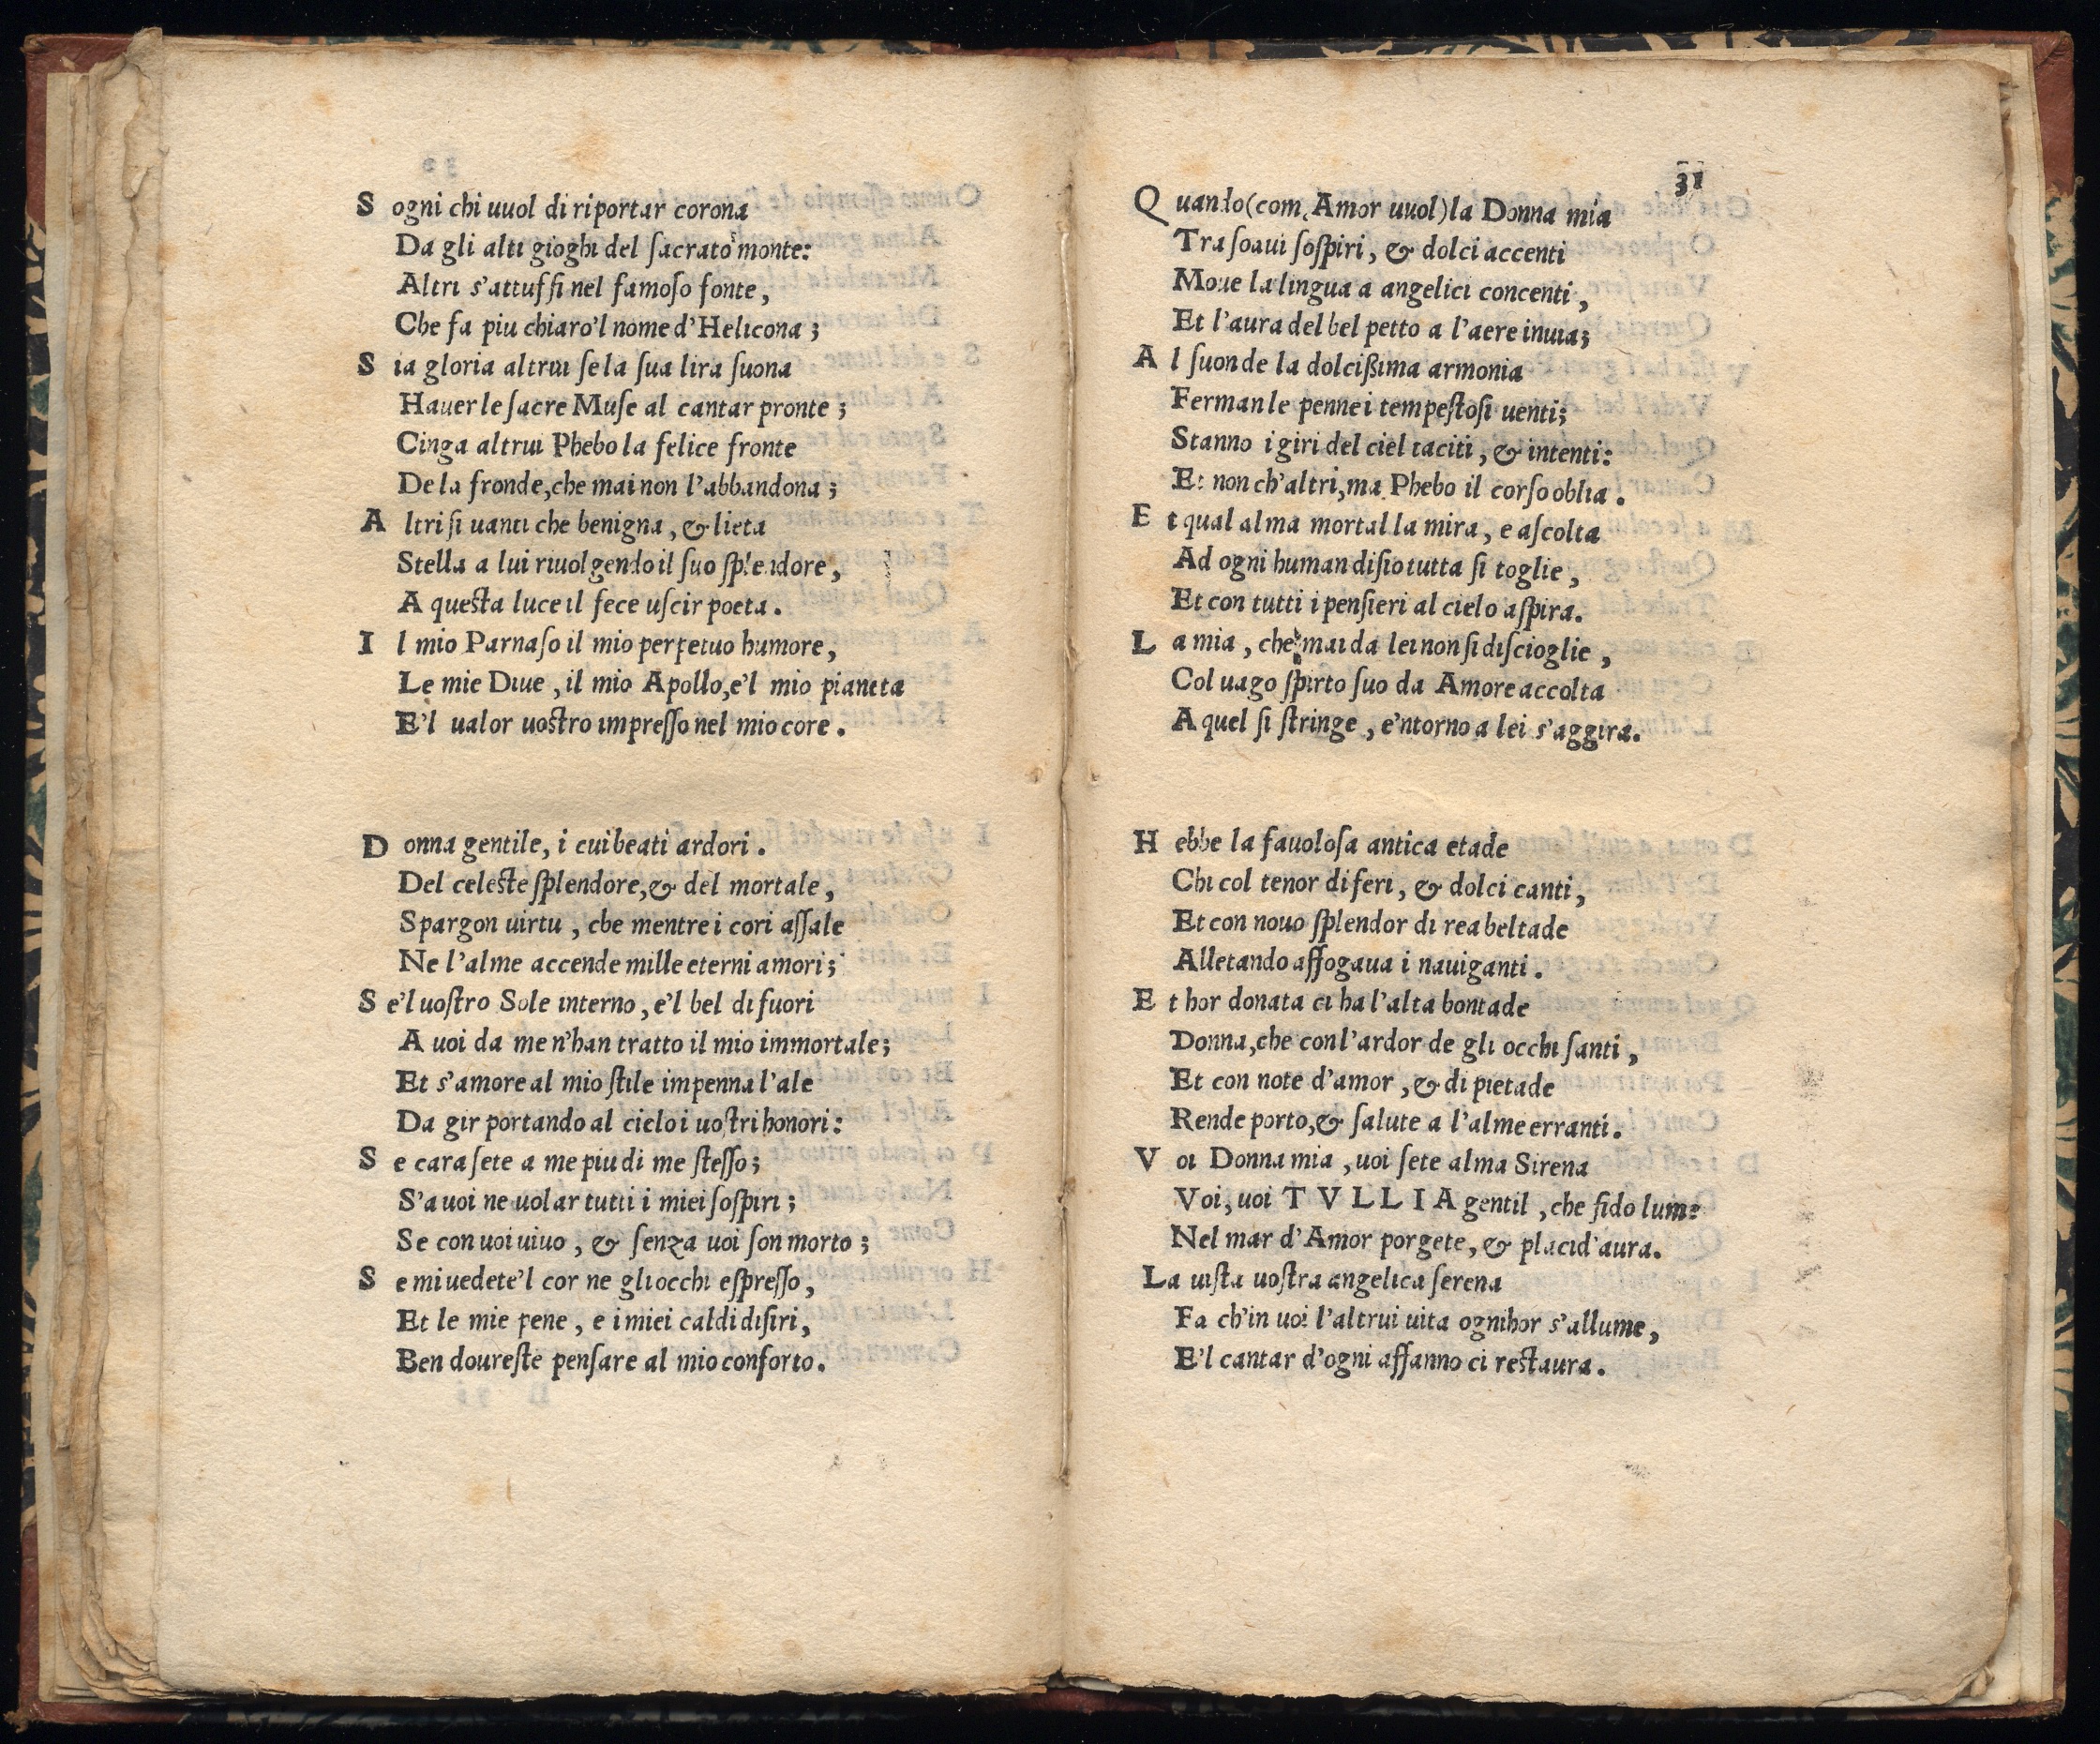 S ogni chi uuol di riportar corona
Da gli alti gioghi del ſacrato monte:
Altri s'attuffi nel famoſo fonte,
Che fa piu chiaro'l nome d'Helicona;
S ia gloria altrui ſe la ſua lira ſuona
Hauer le ſacre Muſe al cantar pronte;
Cinga altrui Phebo la felice fronte
De la fronde, che mai non l'abbandona;
A ltri ſi uanti che benigna, & lieta
Stella a lui riuolgendo il ſuo ſplendore,
A questa luce il fece uſcir poeta.
I l mio Parnaſo il mio perpetuo humore,
Le mie Diue, il mio Apollo, e'l mio pianeta
E'l ualor uoſtro impreſſo nel mio core.
D onna gentile, i cui beati ardori.
Del celeſte ſplendore, & del mortale,
Spargon uirtu, che mentre i cori aſſale
Ne l'alme accende mille eterni amori;
S e'l uoſtro Sole interno, e'l bel di fuori
A uoi da me n'han tratto il mio immortale;
Et s'amore al mio ſtile impenna l'ale
Da gir portando al cielo i uoſtri honori:
S e cara ſete a me piu di me ſteſſo;
S'a uoi ne uolar tutti i miei ſoſpiri;
Se con uoi uiuo, & ſenza uoi ſon morto;
S e mi uedete'l cor ne gli occhi eſpreſſo,
Et le mie pene, e i miei caldi diſiri,
Ben doureſte penſare al mio conforto.
31
Q uando (com Amor uuol) la Donna mia
Tra ſoaui ſoſpiri, & dolci accenti
Moue la lingua a angelici concenti,
Et l'aura del bel petto a l'aere inuia;
A l ſuon de la dolcißima armonia
Ferman le penne i tempeſtoſi uenti;
Stanno i giri del ciel taciti, & intenti:
Et non ch'altri, ma Phebo il corſo oblia.
E t qual alma mortal la mira, e aſcolta
Ad ogni human diſio tutta ſi toglie,
Et con tutti i penſieri al cielo aſpira.
L a mia, che mai da lei non ſi diſcioglie,
Col uago ſpirto ſuo da Amore accolta
A quel ſi ſtringe, e'ntorno a lei s'aggira.
H ebbe la fauoloſa antica etade
Chi col tenor di feri, & dolci canti,
Et con nouo ſplendor di rea beltade
Alletando affogaua i nauiganti.
E t hor donata ci ha l'alta bontade
Donna, che con l'ardor de gli occhi ſanti,
Et con note d'amor, & di pietade
Rende porto, & ſalute a l'alme erranti.
V oi Donna mia, uoi ſete alma Sirena
Voi, uoi TVLLIA gentil, che fido lume
Nel mar d'Amor porgete, & placid'aura.
La uiſta uoſtra angelica ſerena
Fa ch'in uoi l'altrui uita ognihor s'allume,
E'l cantar d'ogni affanno ci reſtaura.